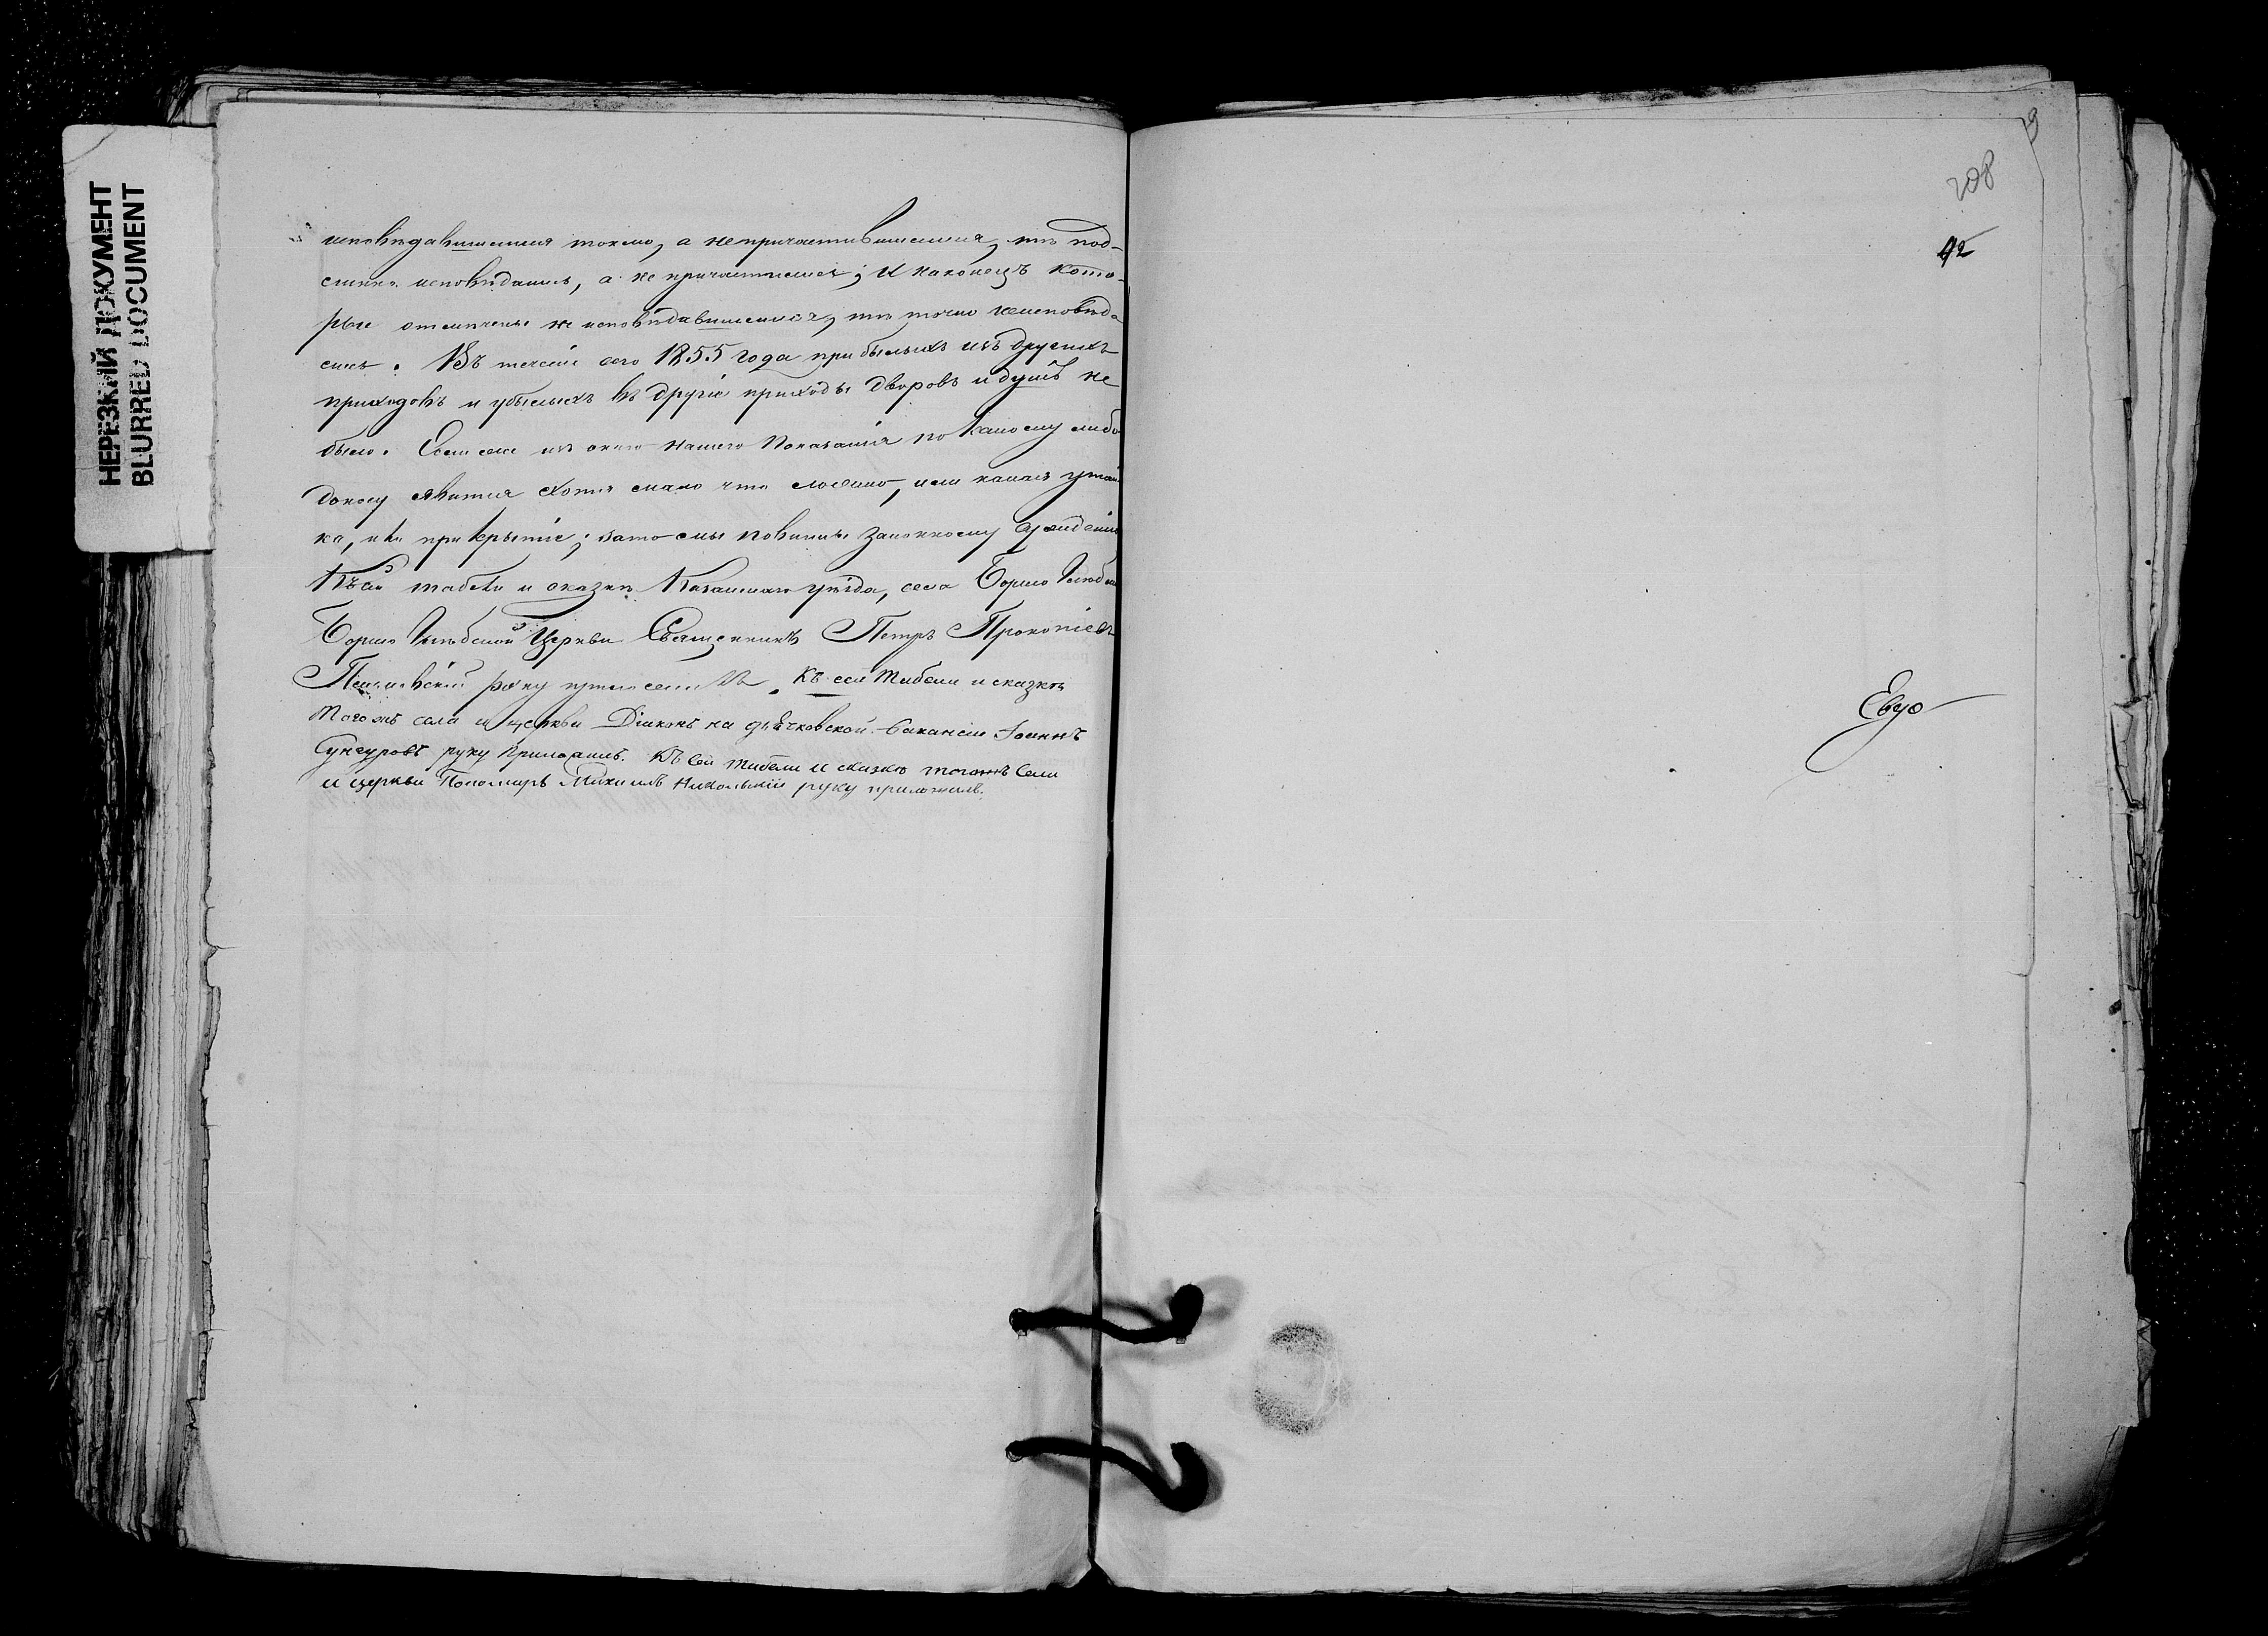 НЕРЕЗКИЙ ДОКУМЕНТ
BLURRED DOCUMENT
исповѣдавшимися токмо, а непричастившимися, тѣ под-
линно исповѣдались, а не причастились; И наконецъ кото-
рые отмѣчены не исповѣдавшимися, тѣ точно неисповѣда
лись. Въ теченіи сего 1855 года прибылыхъ изъ другихъ
приходовъ и убылыхъ въ другіе приходы дворовъ и душъ не
было. Если же изъ онаго нашего показанія по какому либо
доносу явится хотя мало что ложно, или какая утай
ка, или прикрытіе; за то мы повинны законному сужденію
Къ сей табели и сказкѣ уѣзда, села Бормо
Бормо Церкви Священникъ Петръ Прокопіевъ
руку приложилъ. Къ сей Табели и сказкѣ
Того жъ села и церкви Діаконъ на дьячковской вакансіи Іоаннъ
Сунгуровъ руку приложилъ. Къ сей табели и сказкѣ тогожъ села
и церкви Пономарь Михаилъ Никольскій руку приложилъ.
208
42
Евдо